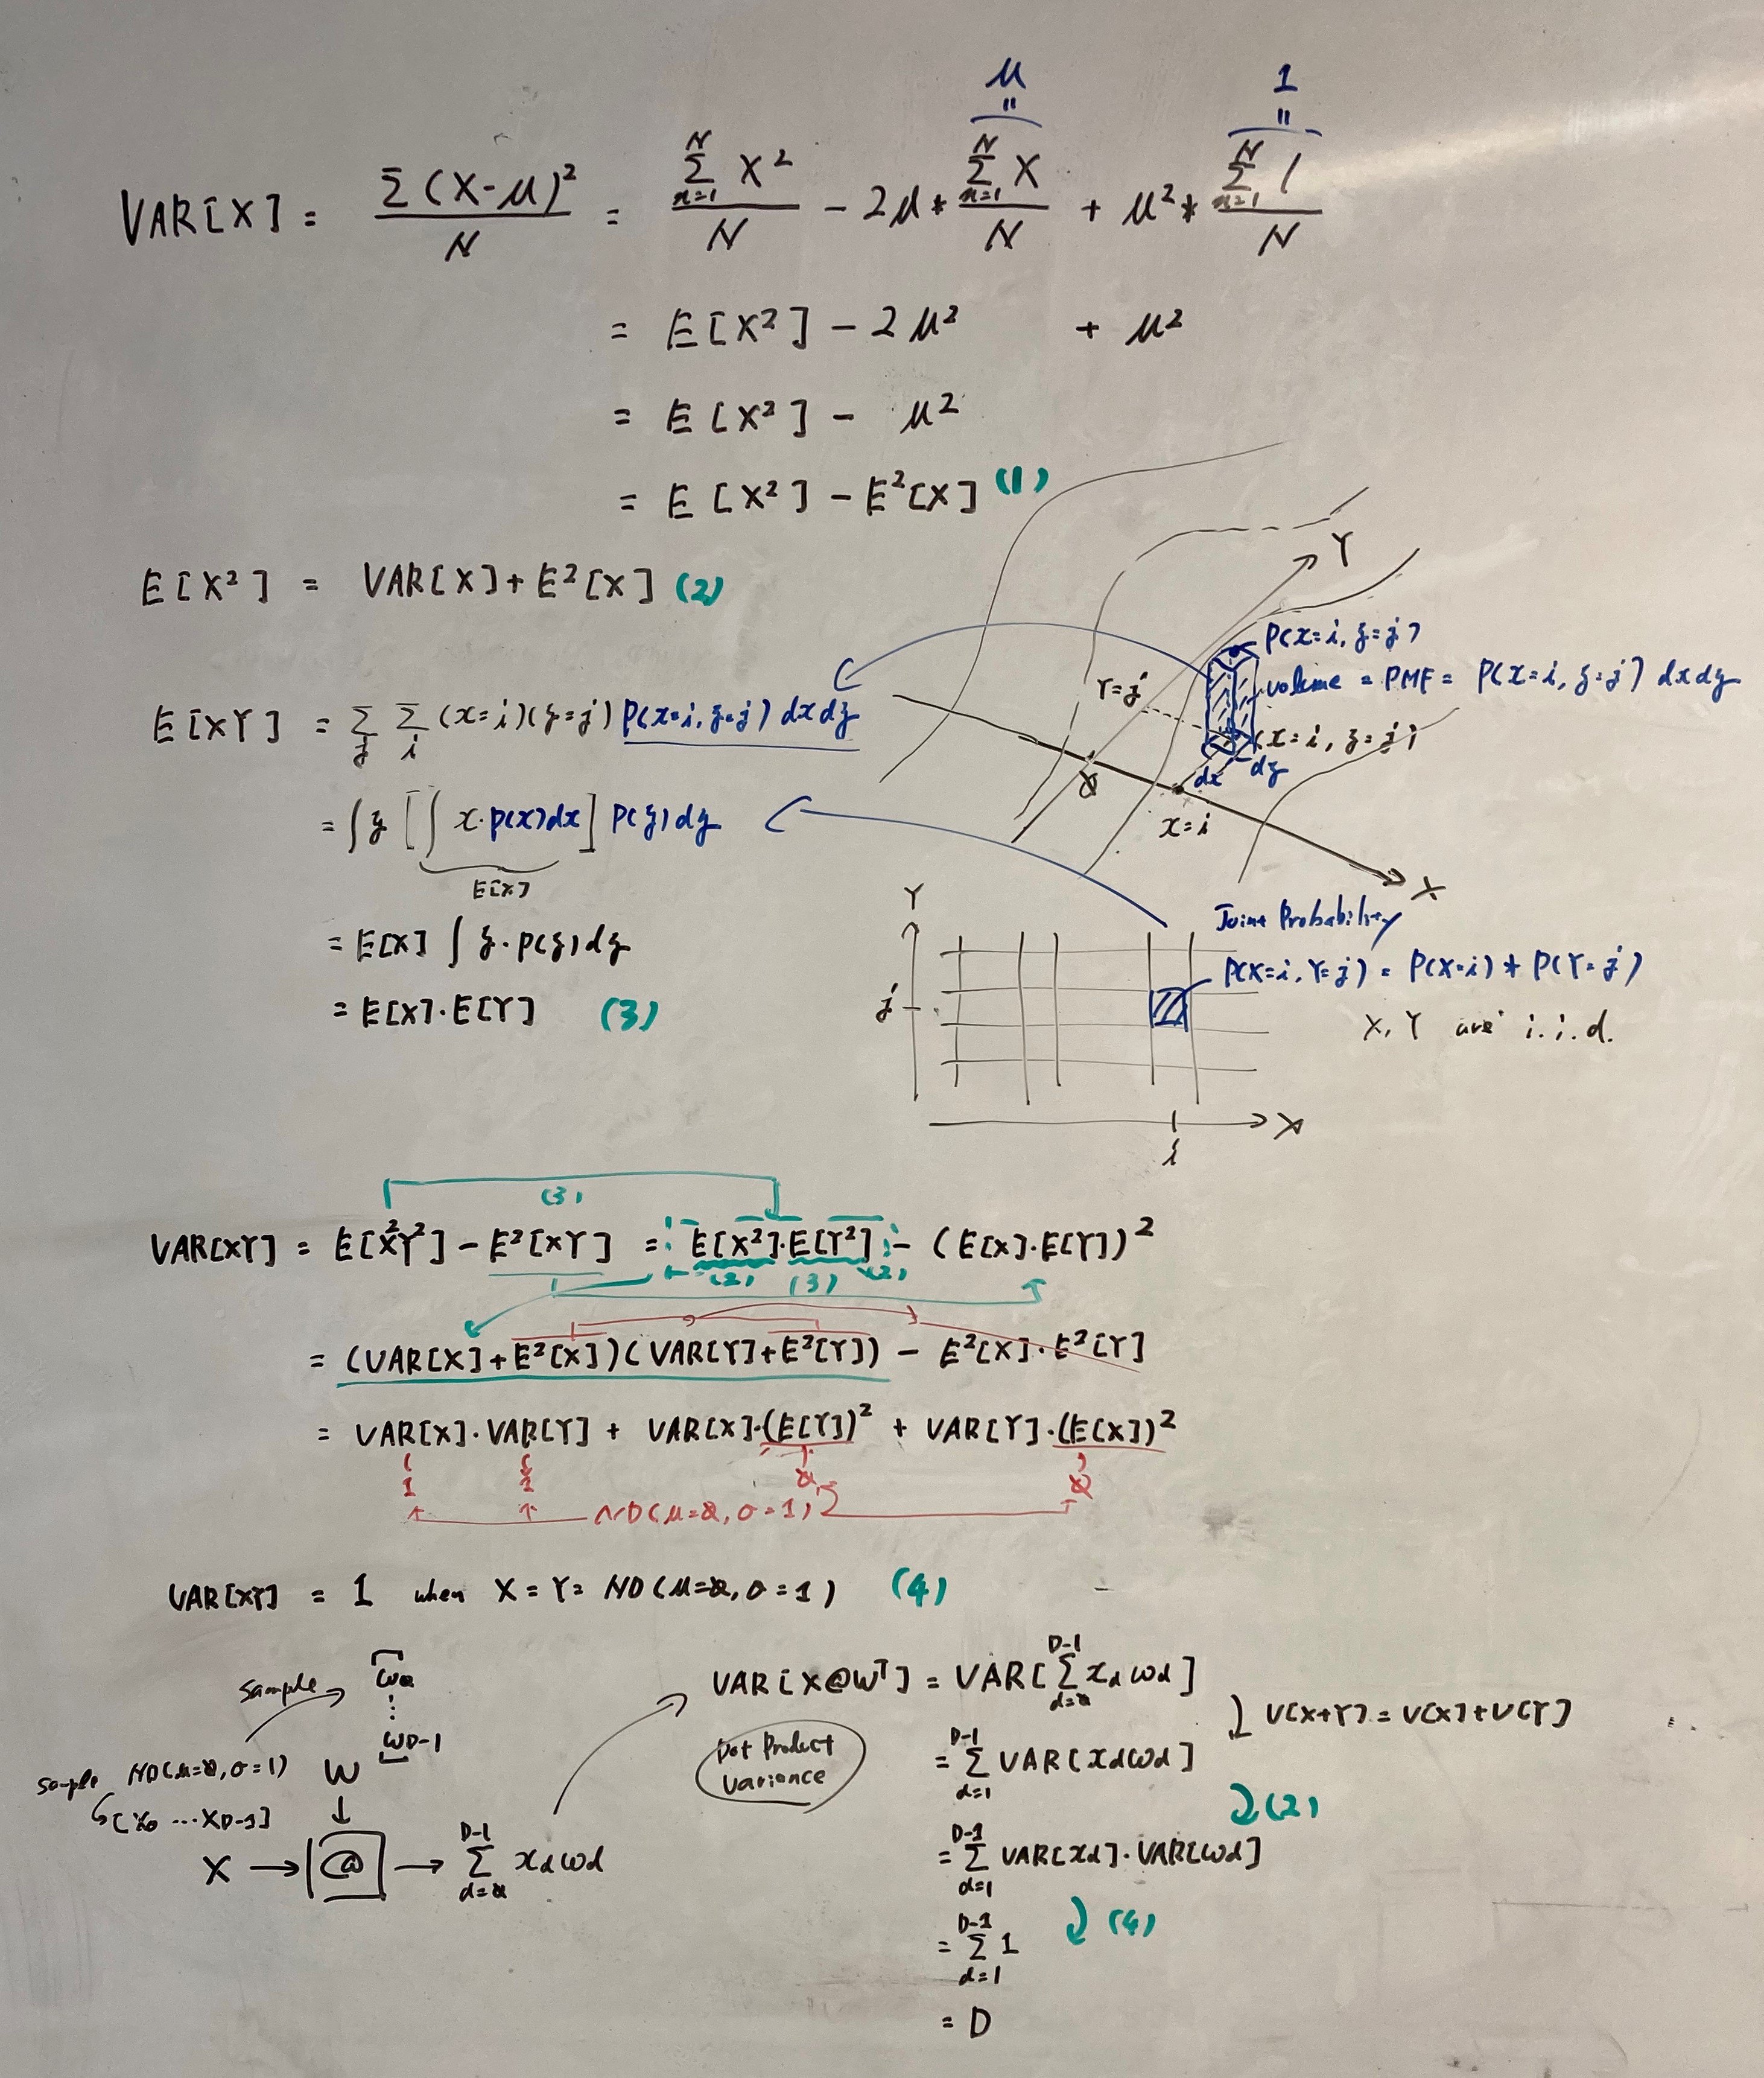 μ 1
= =
VAR[X] = Σ(X-μ)² / N = Σ_{n=1}^{N} X² / N - 2μ * Σ_{n=1}^{N} X / N + μ² * Σ_{n=1}^{N} 1 / N
= E[X²] - 2μ² + μ²
= E[X²] - μ²
= E[X²] - E²[X] (1)
E[X²] = VAR[X] + E²[X] (2)
E[XY] = Σ_j Σ_i (x=i)(y=j) P(x=i, y=j) dx dy
= ∫ y [∫ x·p(x)dx] P(y)dy
E[X]
= E[X] ∫ y·p(y)dy
= E[X]·E[Y] (3)
Y
P(x=i, y=j)
volume = PMF = P(x=i, y=j) dx dy
Y=j
(x=i, y=j)
dx dy
0
x=i
X
Y
Joint Probability
P(X=i, Y=j) = P(X=i) * P(Y=j)
j
X, Y are i.i.d.
X
i
(3)
VAR[XY] = E[X²Y²] - E²[XY] = E[X²]·E[Y²] - (E[X]·E[Y])²
(2) (3) (2)
= (VAR[X]+E²[X])(VAR[Y]+E²[Y]) - E²[X]·E²[Y]
= VAR[X]·VAR[Y] + VAR[X]·(E[Y])² + VAR[Y]·(E[X])²
1 1 0 0
ND(μ=0, σ=1)
VAR[XY] = 1 when X = Y = ND(μ=0, σ=1) (4)
sample
w0
⋮
wD-1
sample ND(μ=0, σ=1) W
[x0 ... xD-1]
X → @ → Σ_{d=0}^{D-1} xd wd
VAR[X@Wᵀ] = VAR[Σ_{d=0}^{D-1} xd wd]
V[X+Y] = V[X]+V[Y]
Dot Product
Variance
= Σ_{d=1}^{D-1} VAR[xd wd]
(2)
= Σ_{d=1}^{D-1} VAR[xd]·VAR[wd]
(4)
= Σ_{d=1}^{D-1} 1
= D